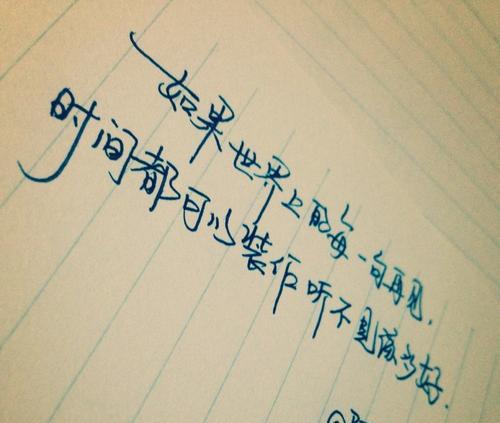 如果世界上的每一句再见,
时间都可以装作听不到该多好.